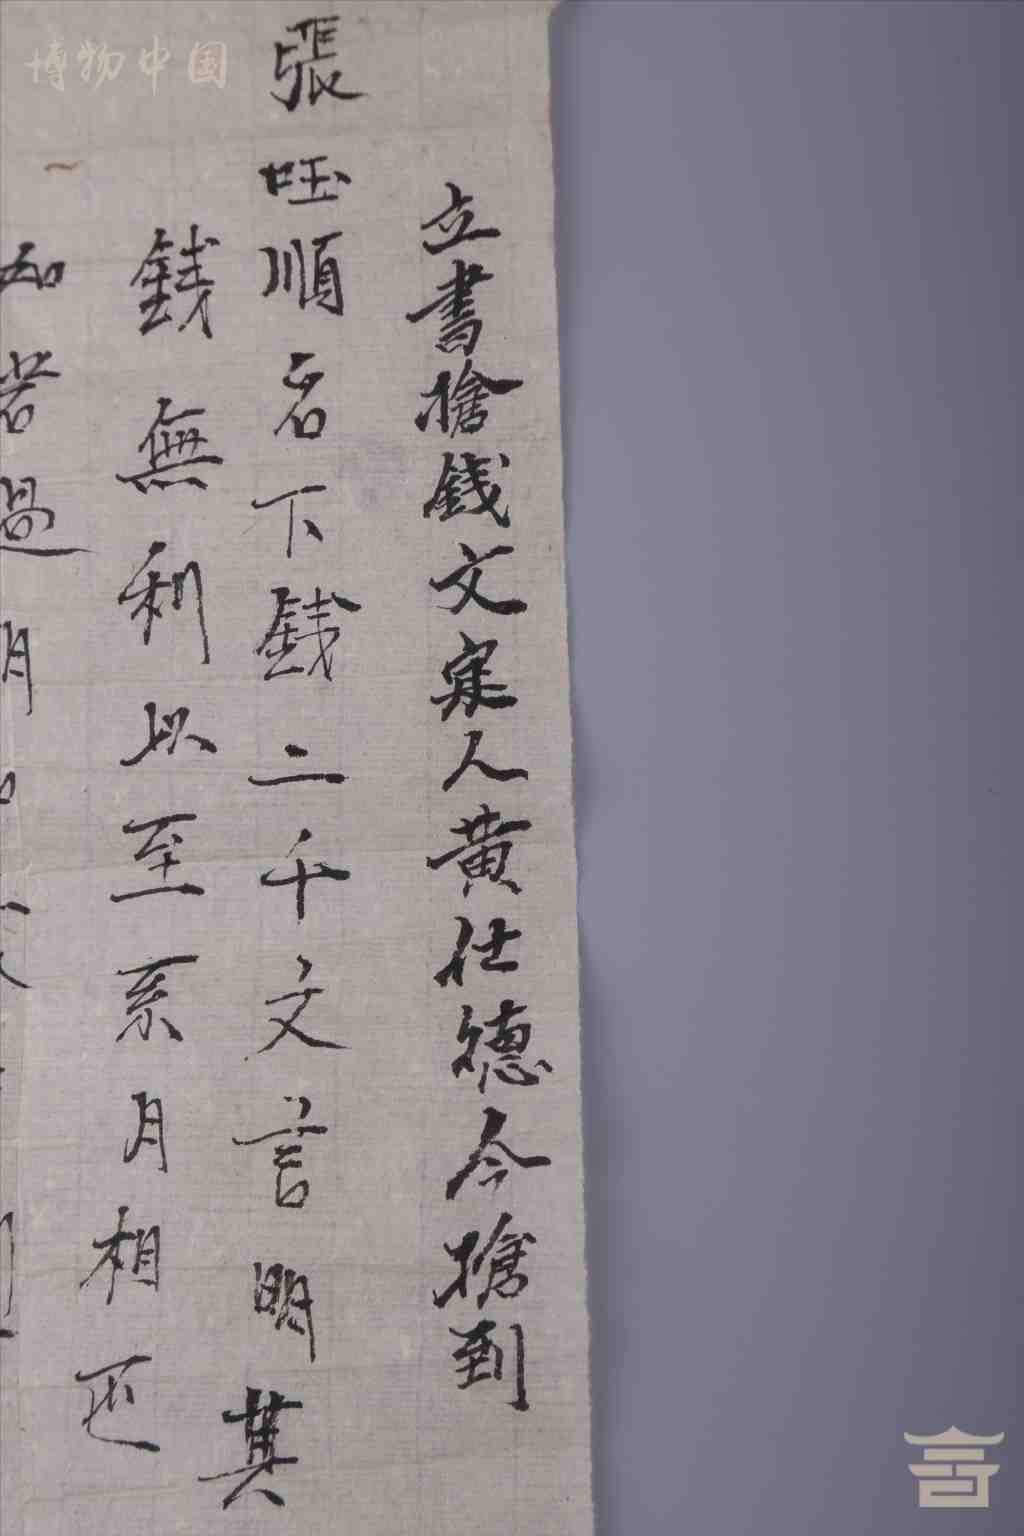 博物中国
立書搶錢文寀人黄仕德今搶到
張㕵順名下錢二千文言明其
錢無利以至系月相还
若過